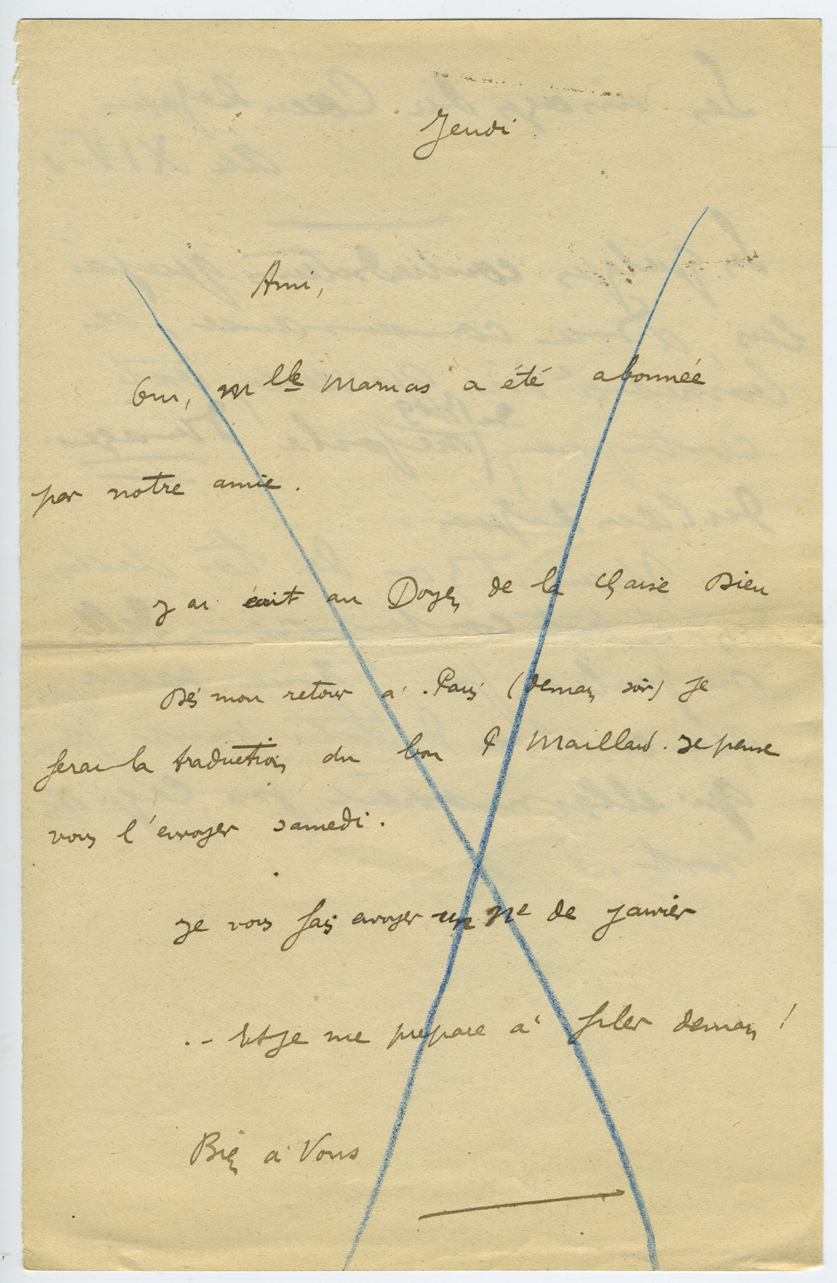 Jeudi
Ami,
Oui, Mlle Mamas a été abonnée
par notre amie.
J'ai écrit au Doyen de la Chaise Dieu
Dès mon retour à Paris (demain soir) je
ferai la traduction du bon P Maillard. Je pense
vous l'envoyer samedi.
Je vous fais envoyer un No de janvier
.. Et je me prépare à filer demain !
Bien à Vous